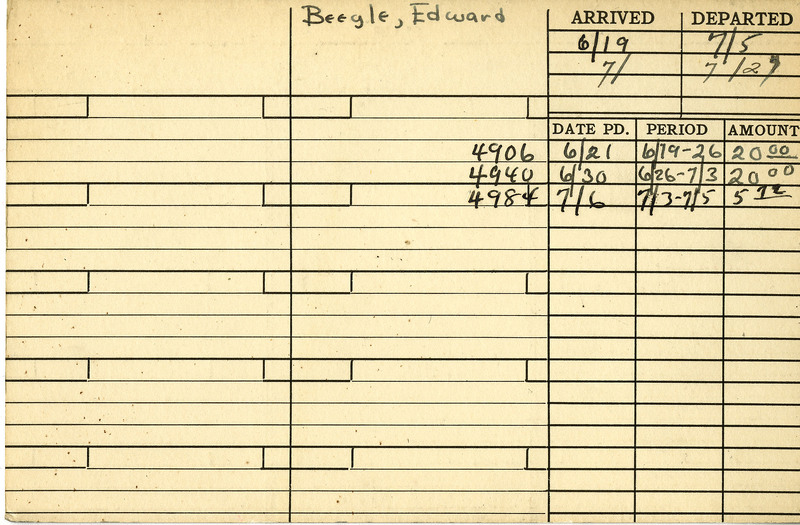 Beegle, Edward
ARRIVED DEPARTED
6/19 7/5
7/ 7/27
DATE PD. PERIOD AMOUNT
4906 6/21 6/19-26 20 00
4940 6/30 6/26-7/3 20 00
4984 7/6 7/3-7/5 5